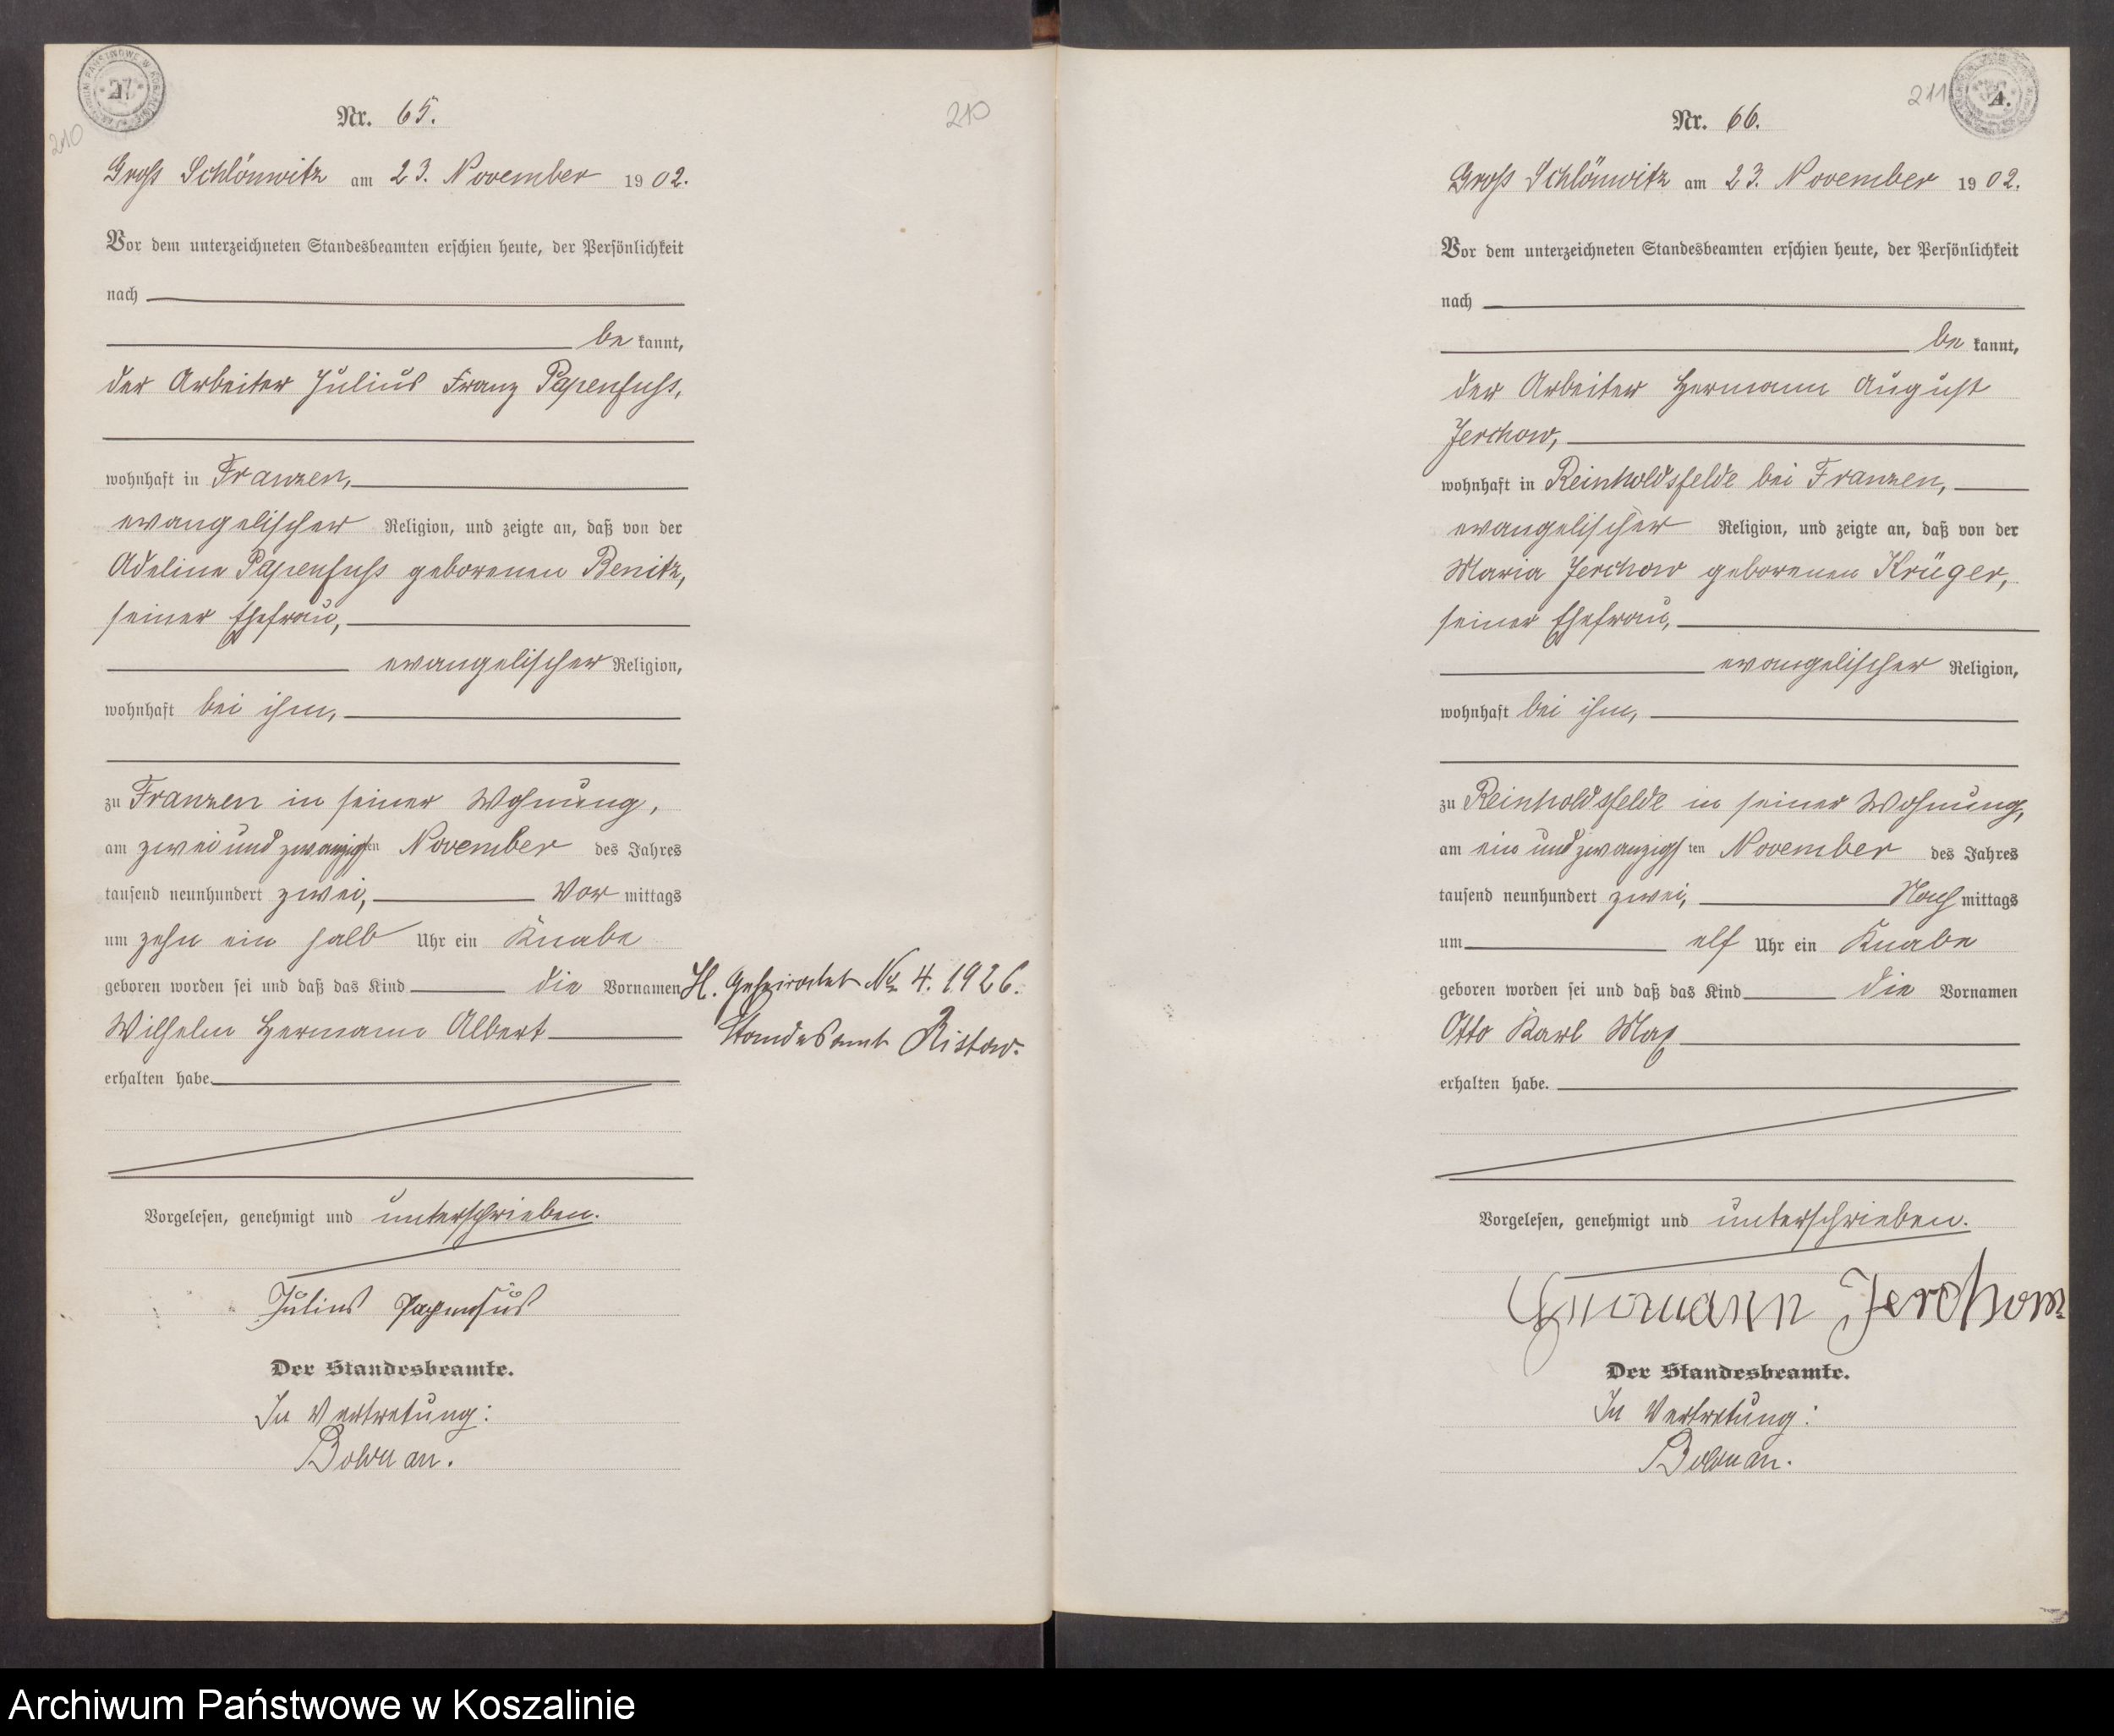 210
Nr. 65.
210
Gross Schlönwitz am 23. November 1902.
Vor dem unterzeichneten Standesbeamten erschien heute, der Persönlichkeit
nach
be kannt,
der Arbeiter Julius Franz Papenfuss,
wohnhaft in Franzen,
evangelischer Religion, und zeigte an, daß von der
Adeline Papenfuss geborenen Benitz,
seiner Ehefrau,
evangelischer Religion,
wohnhaft bei ihm,
zu Franzen in seiner Wohnung,
am zwei und zwanzigsten November des Jahres
tausend neunhundert zwei, Vor mittags
um zehn ein halb Uhr ein Knabe
geboren worden sei und daß das Kind die Vornamen
Wilhelm Hermann Albert
erhalten habe.
H. Geheiratet Nr. 4. 1926.
Standesamt Ristow.
Vorgelesen, genehmigt und unterschrieben.
Julius Papenfuß
Der Standesbeamte.
In Vertretung:
211
Nr. 66.
Gross Schlönwitz am 23. November 1902.
Vor dem unterzeichneten Standesbeamten erschien heute, der Persönlichkeit
nach
be kannt,
der Arbeiter Hermann August
Jerchow,
wohnhaft in Reinholdsfelde bei Franzen,
evangelischer Religion, und zeigte an, daß von der
Maria Jerchow geborenen Krüger,
seiner Ehefrau,
evangelischer Religion,
wohnhaft bei ihm,
zu Reinholdsfelde in seiner Wohnung,
am ein und zwanzigsten November des Jahres
tausend neunhundert zwei, Nach mittags
um elf Uhr ein Knabe
geboren worden sei und daß das Kind die Vornamen
Otto Karl Max
erhalten habe.
Vorgelesen, genehmigt und unterschrieben.
Hermann Jerchow
Der Standesbeamte.
In Vertretung:
Archiwum Państwowe w Koszalinie